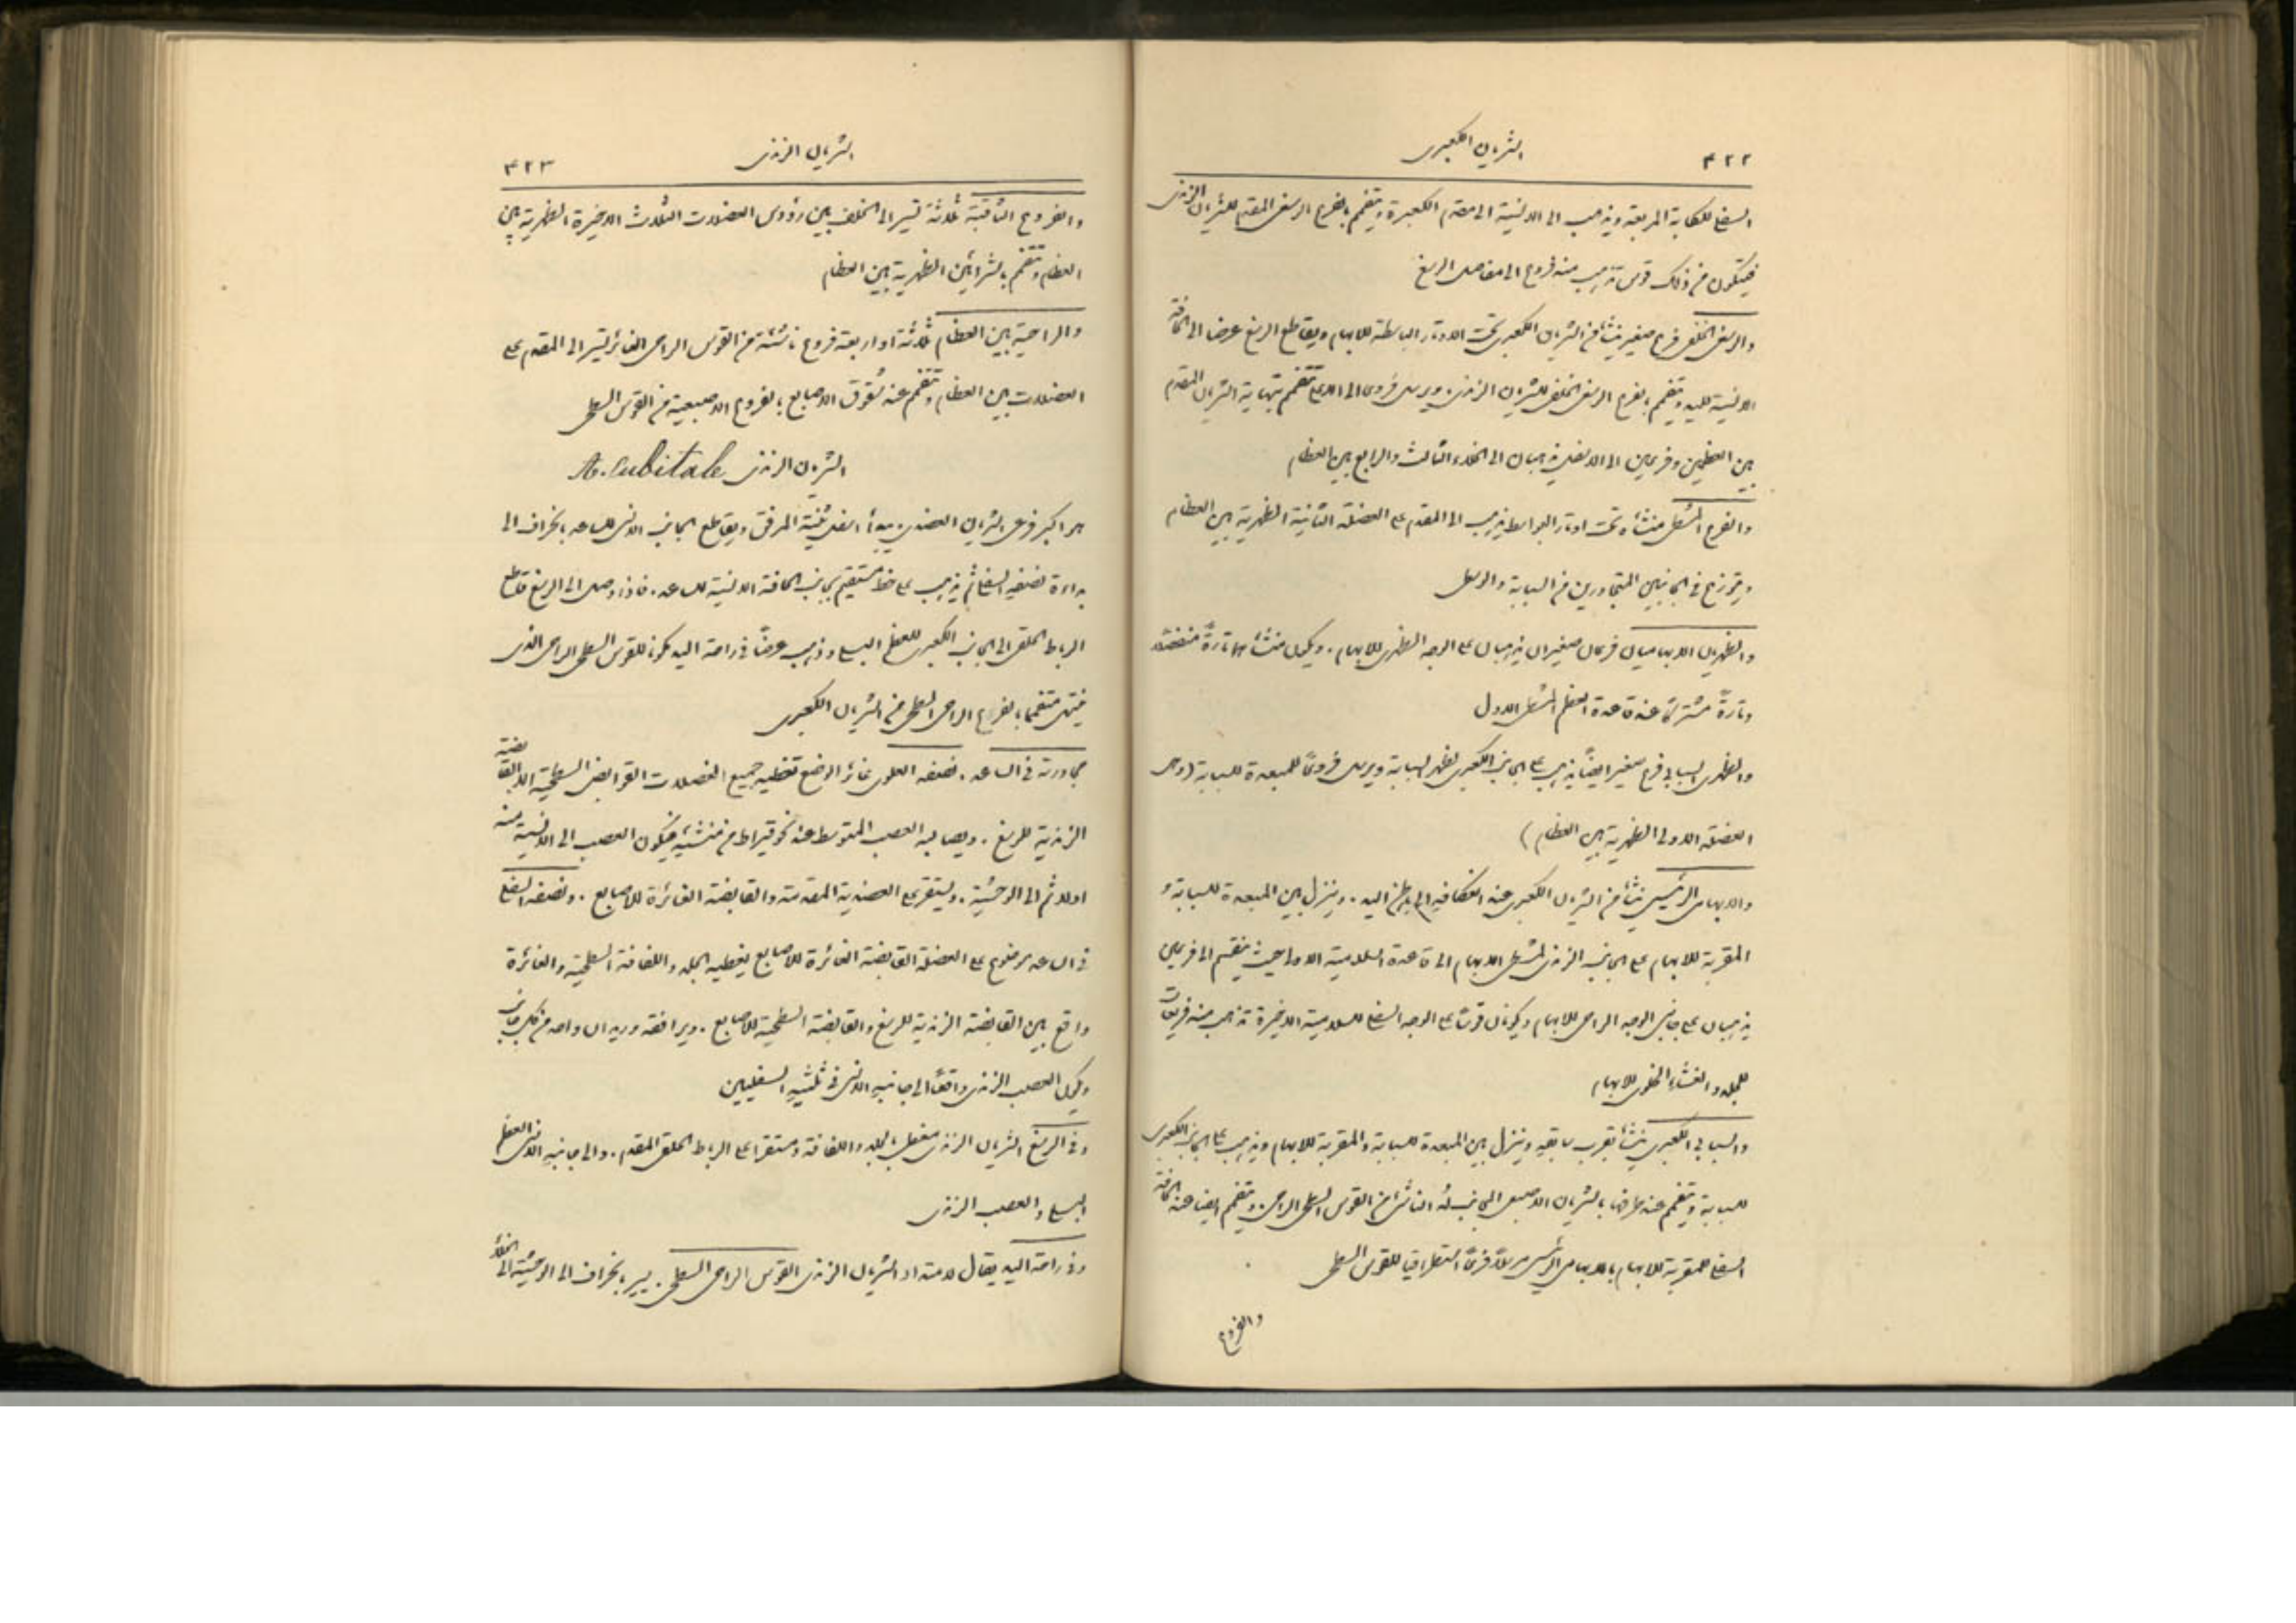 ٤٢٢
الشريان الكعبرى
السفلى للكابة المربعة ويذهب الى الانسية الى مقدم الكعبرة ويتفمم بالفرع الرسغى المقدم للشريان الزندى
فيتكون من ذلك قوس تذهب منه فروع الى مفاصل الرسغ
والرسغى الخلفى فرع صغير ينشأ من الشريان الكعبرى تحت الاوتار الباسطة للابهام ويقاطع الرسغ عرضا الى الحافة
الانسية لليد ويتفمم بالفرع الرسغى الخلفى للشريان الزندى. ويرسل فروعا الى الاعلى تتفمم بنهاية الشريان المقدم
بين العظمين وفرعين الى الاسفل يذهبان الى الخلاء الثالث والرابع بين العظام
والفرع المشطى منشأه تحت اوتار البواسط يذهب الى المقدم على العضلة الثانية الظهرية بين العظام
ويتوزع فى الجانبين المتجاورين من السبابة والوسطى
والظهريان الابهاميان فرعان صغيران يذهبان على الوجه الظهرى للابهام. ويكون منشأهما تارةً منفصلا
وتارةً مشتركًا عند قاعدة العظم المشطى الاول
والظهرى السبابى فرع صغير ايضًا يذهب على الجانب الكعبرى لظهر السبابة ويرسل فروعًا للمبعدة للسبابة (وهى
العضلة الاولى الظهرية بين العظام)
والابهامى الرئيسى ينشأ من الشريان الكعبرى عند انعكافه الى باطن اليد. وينزل بين المبعدة للسبابة و
المقربة للابهام على الجانب الزندى لمشطى الابهام الى قاعدة السلامية الاولى حيث ينقسم الى فرعين
يذهبان على جانبى الوجه الراحى للابهام ويكونان قوسًا على الوجه السفلى للسلامية الاخيرة تذهب منه فريعات
للجلد والغشاء الخلوى للابهام
والسبابى الكعبرى ينشأ بقرب سابقه وينزل بين المبعدة للسبابة والمقربة للابهام ويذهب على الجانب الكعبرى
للسبابة ويتفمم عند طرفها بالشريان الاصبعى الجانب له الناشئ من القوس السطحى الراحى. ويتفمم ايضا عند الحافة
السفلى للمقربة للابهام بالابهامى الرئيسى مرسلاً فرعًا استطراقيا للقوس السطحى
والفروع
الشريان الزندى
٤٢٣
والفروع الثاقبة ثلاثة تسير الى الخلف بين رؤوس العضلات الثلاث الاخيرة الظهرية بين
العظام وتتفمم بالشرائين الظهرية بين العظام
والراحية بين العظام ثلاثة او اربعة فروع ناشئة من القوس الراحى الغائر تسير الى المقدم على
العضلات بين العظام وتتفمم عند شقوق الاصابع بالفروع الاصبعية من القوس السطحى
الشريان الزندى A. Cubitale
هو اكبر فرعى الشريان العضدى. يبدأ اسفل ثنية المرفق ويقاطع الجانب الانسى للساعد بانحراف الى
بداءة نصفه السفلى ثم يذهب على خط مستقيم بجانب الحافة الانسية للساعد. فاذا وصل الى الرسغ قاطع
الرباط الحلقى الى الجانب الكعبرى للعظم البسلى وذهب عرضًا فى راحة اليد مكونا للقوس السطحى الراحى الذى
ينتهى متفمما بالفرع الراحى السطحى من الشريان الكعبرى
مجاورته فى الساعد. نصفه العلوى غائر الوضع تغطيه جميع العضلات القوابض السطحية الا القابضة
الزندية للرسغ. ويصالبه العصب المتوسط عند نحو قيراط من منشئه فيكون العصب الى الانسية منه
اولا ثم الى الوحشية. ويستقر على العضدية المقدمة والقابضة الغائرة للاصابع. ونصفه السفلى
فى الساعد موضوع على العضلة القابضة الغائرة للاصابع يغطيه الجلد واللفافة السطحية والغائرة
واقع بين القابضة الزندية للرسغ والقابضة السطحية للاصابع. ويرافقه وريدان واحد من كل جانب
ويكون العصب الزندى واقعًا الى جانبه الانسى فى ثلثيه السفليين
وفى الرسغ الشريان الزندى مغطى بالجلد واللفافة ومستقر على الرباط الحلقى المقدم. والى جانبه الانسى العظم
البسلى والعصب الزندى
وفى راحة اليد يقال لامتداد الشريان الزندى القوس الراحى السطحى. يسير بانحراف الى الوحشية الى الخلاء